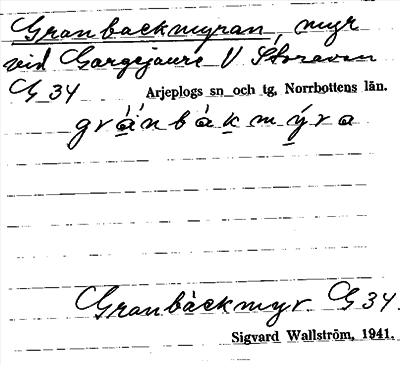 Granbackmyran, myr
vid Gargejaure V Storavan
G 34 Arjeplogs sn och tg, Norrbottens län.
grànbàkmýra
Granbàckmyr. G 34.
Sigvard Wallström, 1941.